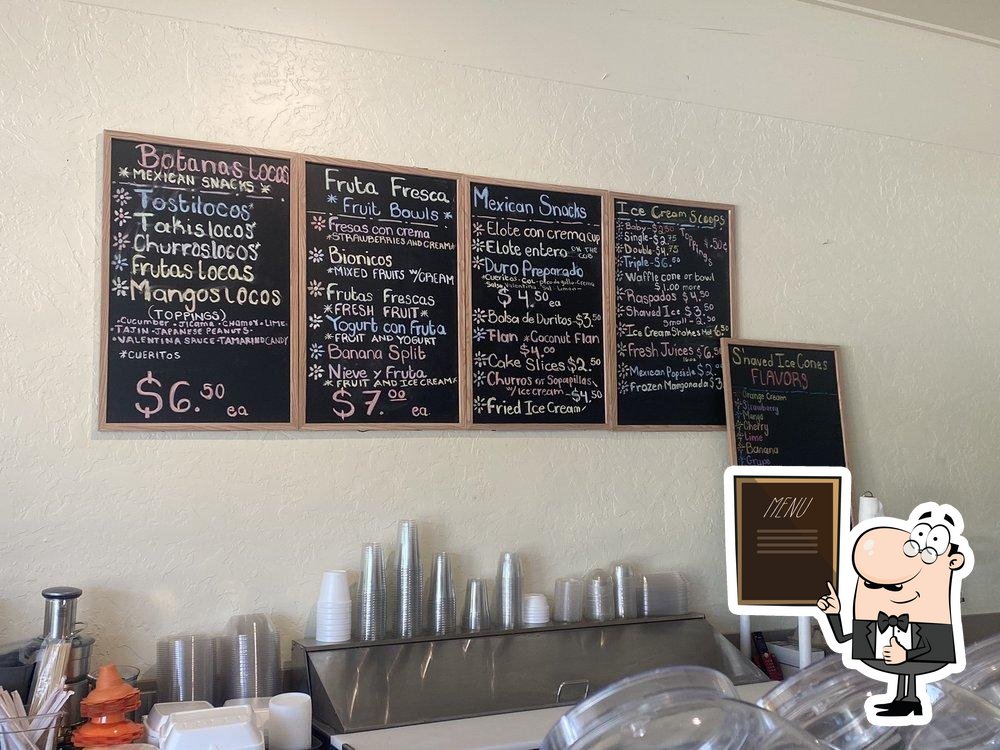 Botanas Locas
*MEXICAN SNACKS*
*Tostilocos
*Takislocos
*Churroslocos
*Frutas locas
*Mangos Locos
(TOPPINGS)
-Cucumber - Jicama - CHAMOY - LIME
- TAJIN - JAPANESE PEANUTS -
- VALENTINA SAUCE - TAMARIND CANDY
*CUERITOS
$6.50 ea
Fruta Fresca
*Fruit Bowls*
*Fresas con crema
*STRAWBERRIES AND CREAM*
*Bionicos
*MIXED FRUITS W/CREAM
*Frutas Frescas
*FRESH FRUIT*
*Yogurt con Fruta
*FRUIT AND YOGURT
*Banana Split
*Nieve y Fruta
*FRUIT AND ICE CREAM*
$7.00 ea.
Mexican Snacks
*Elote con crema cup
*Elote entero ON THE COB
*Duro Preparado
*Cueritos-Col-pico de gallo-Crema
Salsa Valentina
$4.50 ea
*Bolsa de Duritos-$3.50
*Flan *Coconut Flan
$4.00
*Cake Slices $2.50
*Churros or Sopapillas
w/Ice cream-$4.50
*Fried Ice Cream
Ice Cream Scoops
*Baby-$2.50
*Single-$2.75
*Double-$4.75
*Triple-$6.50
Toppings $.50¢
*Waffle cone or bowl
$1.00 more
*Raspados $4.50
*Shaved Ice $3.50
Small-2.50
*Ice Cream Shakes 6.50
*Fresh Juices $6.50
*Mexican Popsicle $2.
*Frozen Mangonada $3.
Shaved Ice Cones
FLAVORS
*Orange Cream
*Strawberry
*Mango
*Cherry
*Lime
*Banana
*Grape
MENU